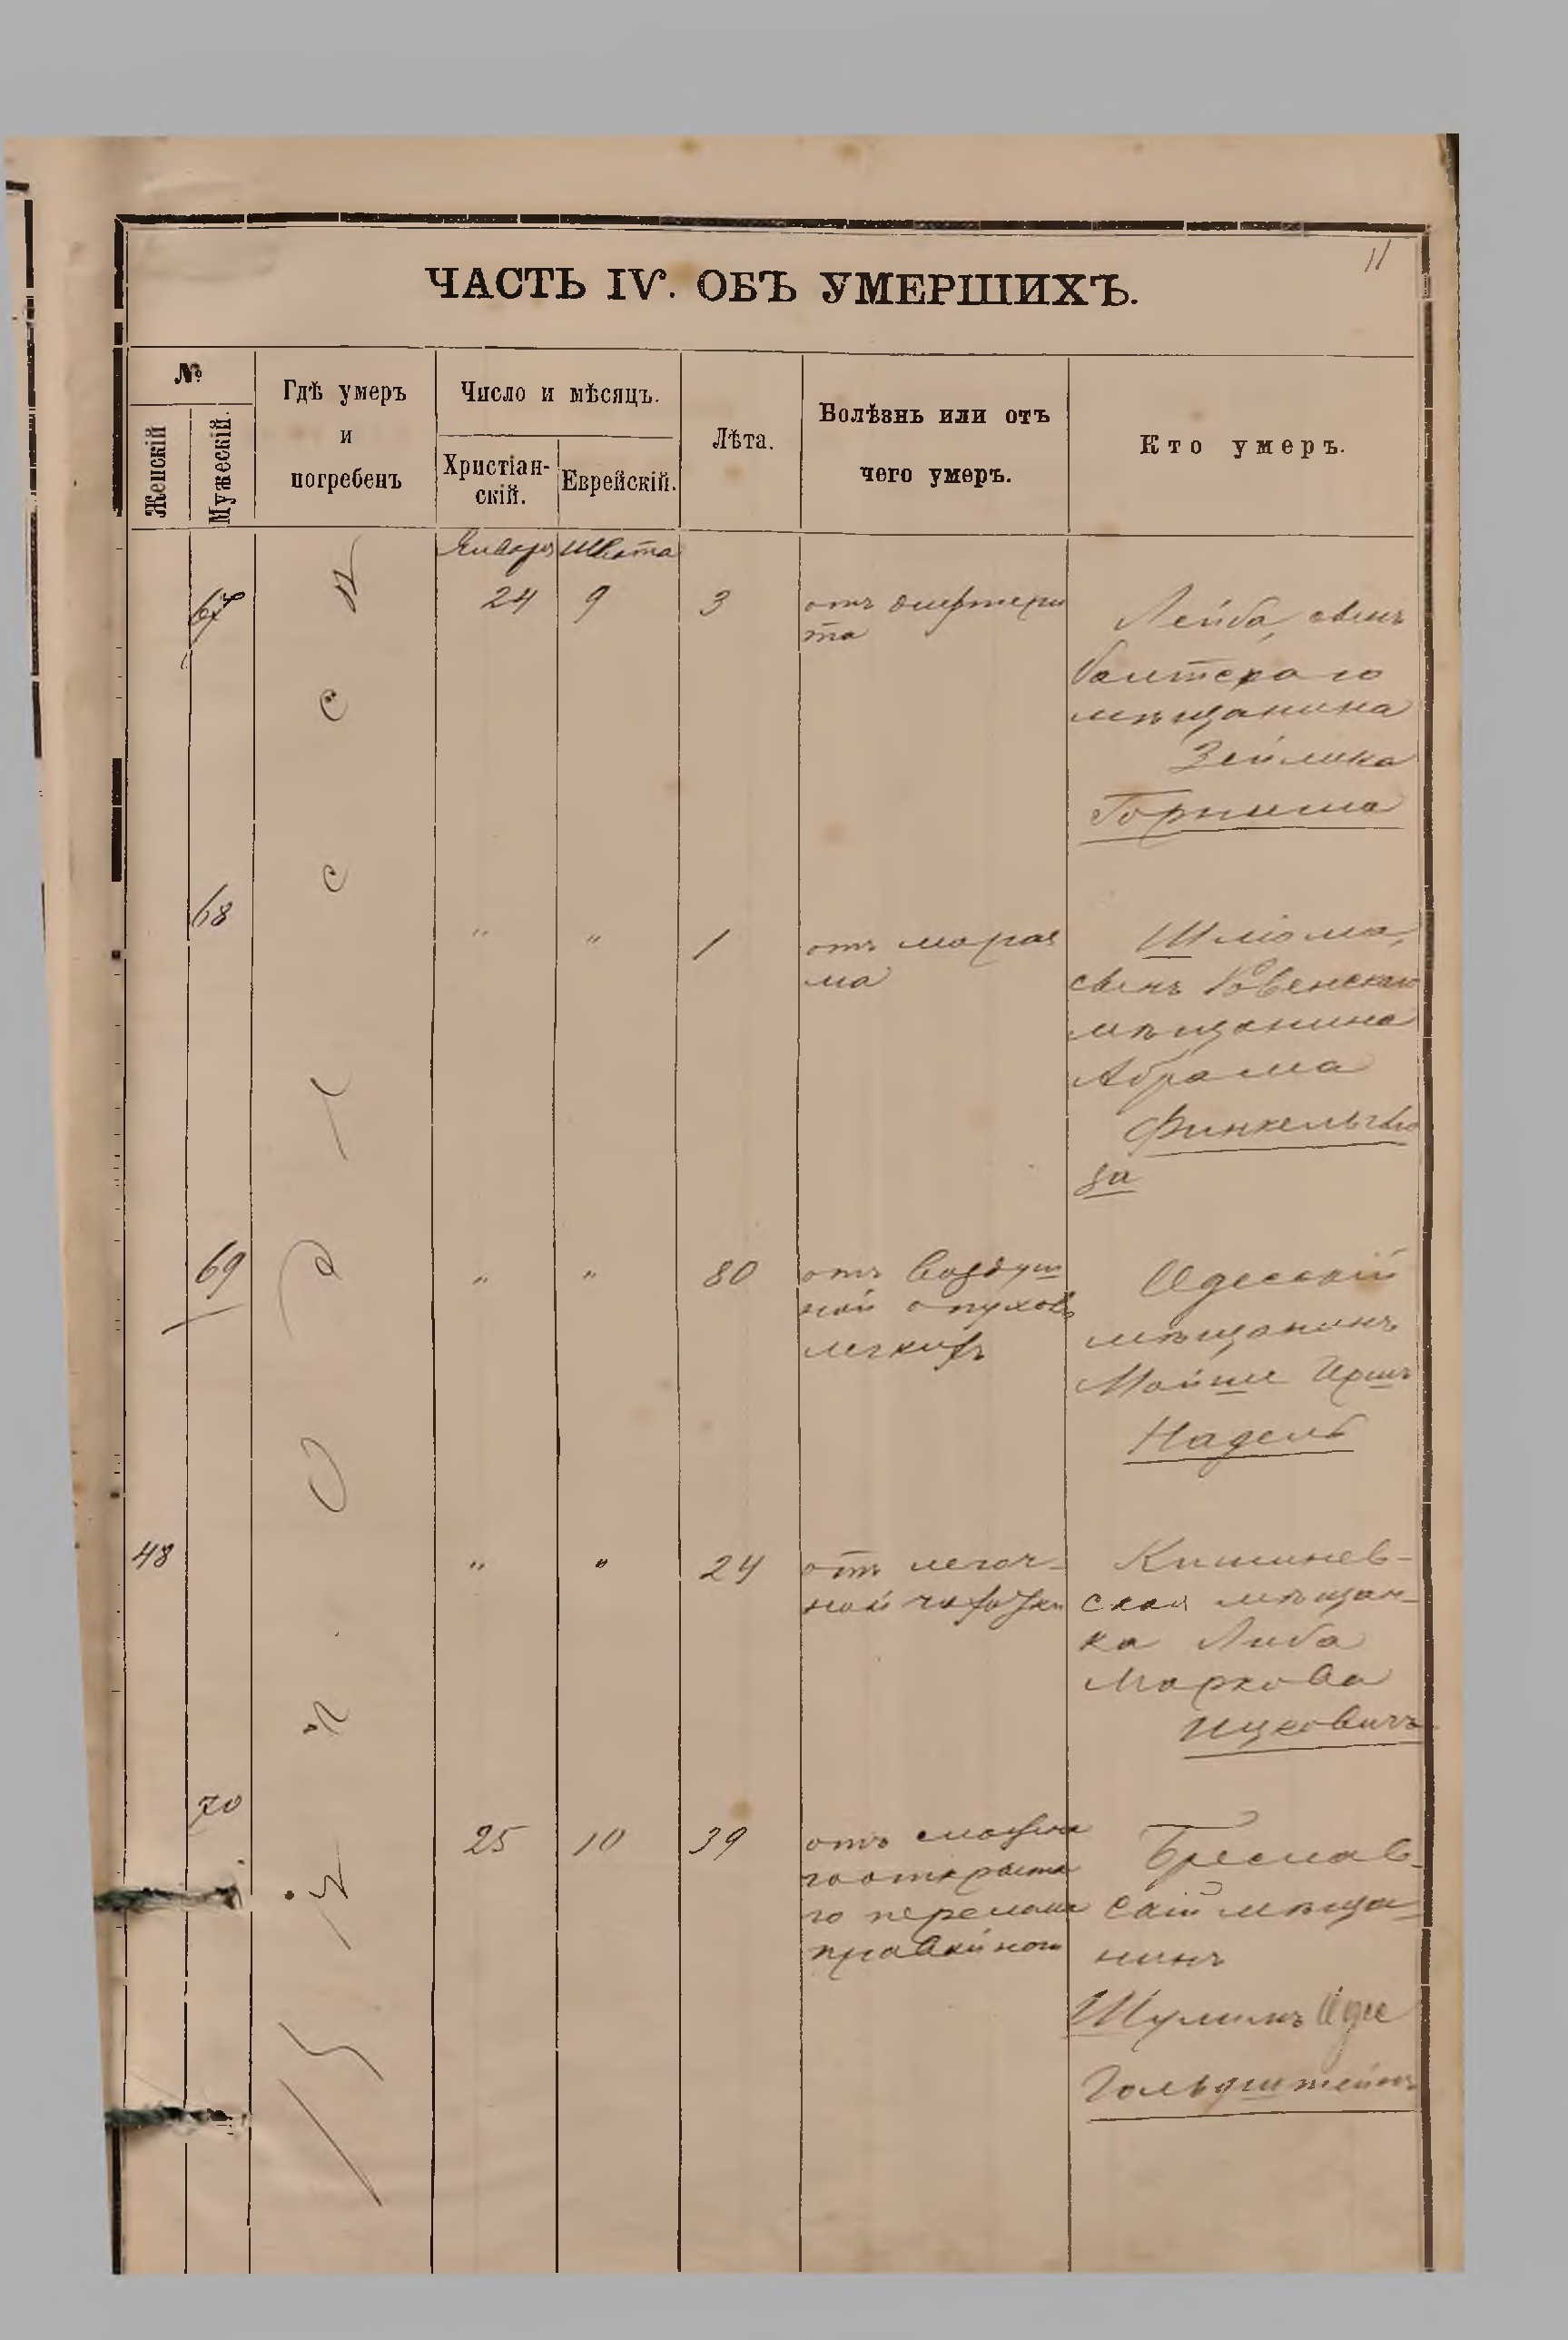 11
ЧАСТЬ IV. ОБЪ УМЕРШИХЪ.
№
Женскій
Мужескій.
Гдѣ умеръ
и
погребенъ
Число и мѣсяцъ.
Христіан-
скій.
Еврейскій.
Лѣта.
Болѣзнь или отъ
чего умеръ.
Кто умеръ.
Января Швата
67 24 9 3 отъ дифтери
та
Лейба, сынъ
балтскаго
мѣщанина
Зейлика
68 " " 1 отъ мараз
ма
Шліома,
сынъ Ровенскаго
мѣщанина
Абрама
Финкельблю
да
69 " " 80 отъ воздуш
ной опухоли
легкихъ
Одесскій
мѣщанинъ
Мойше Иршъ
Надель
48 " " 24 отъ легоч-
ной чахотки
Кишинев-
ская мѣщан-
ка Либа
Маркова
Ицковичъ
70 25 10 39 отъ сложна
го открыта
го перелома
правой ноги
Бреслав-
скій мѣща-
нинъ
Шулимъ
Гольдштейнъ
Одесса